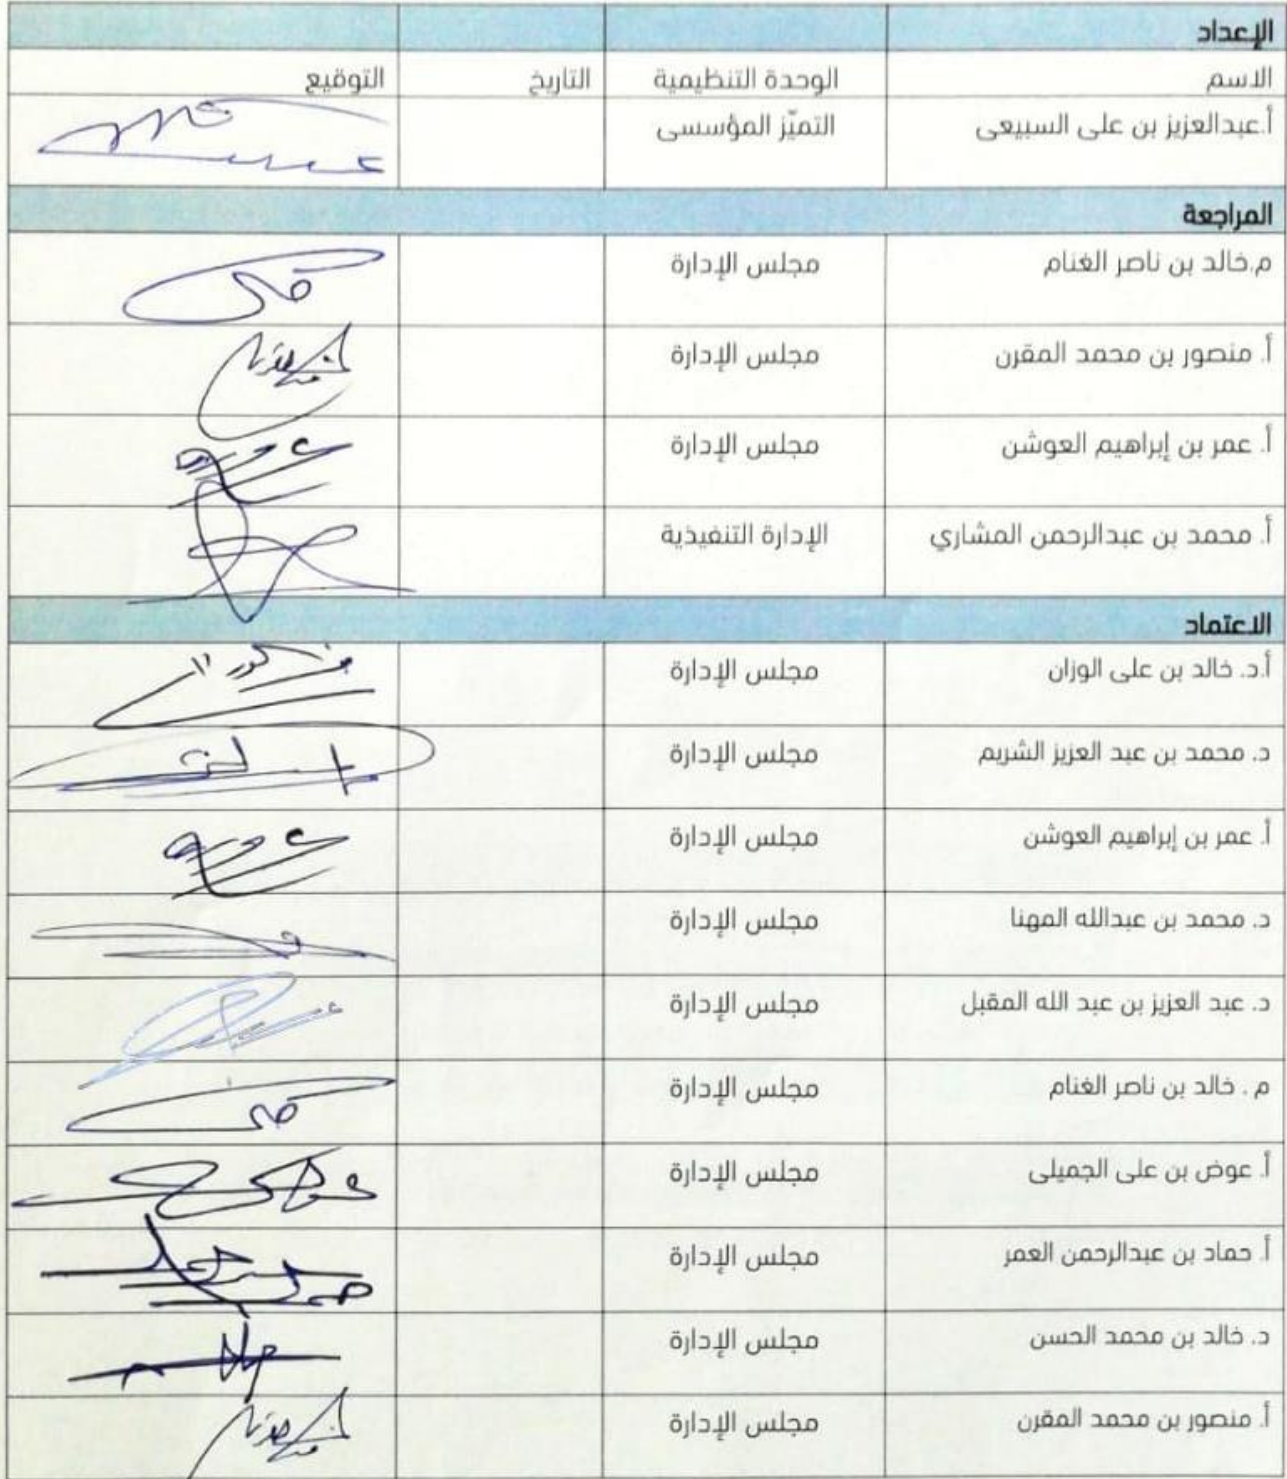 الإعداد
الاسم الوحدة التنظيمية التاريخ التوقيع
أ.عبدالعزيز بن على السبيعى التميّز المؤسسى
المراجعة
م.خالد بن ناصر الغنام مجلس الإدارة
أ. منصور بن محمد المقرن مجلس الإدارة
أ. عمر بن إبراهيم العوشن مجلس الإدارة
أ. محمد بن عبدالرحمن المشاري الإدارة التنفيذية
الاعتماد
أ.د. خالد بن على الوزان مجلس الإدارة
د. محمد بن عبد العزيز الشريم مجلس الإدارة
أ. عمر بن إبراهيم العوشن مجلس الإدارة
د. محمد بن عبدالله المهنا مجلس الإدارة
د. عبد العزيز بن عبد الله المقبل مجلس الإدارة
م . خالد بن ناصر الغنام مجلس الإدارة
أ. عوض بن على الجميلى مجلس الإدارة
أ. حماد بن عبدالرحمن العمر مجلس الإدارة
د. خالد بن محمد الحسن مجلس الإدارة
أ. منصور بن محمد المقرن مجلس الإدارة